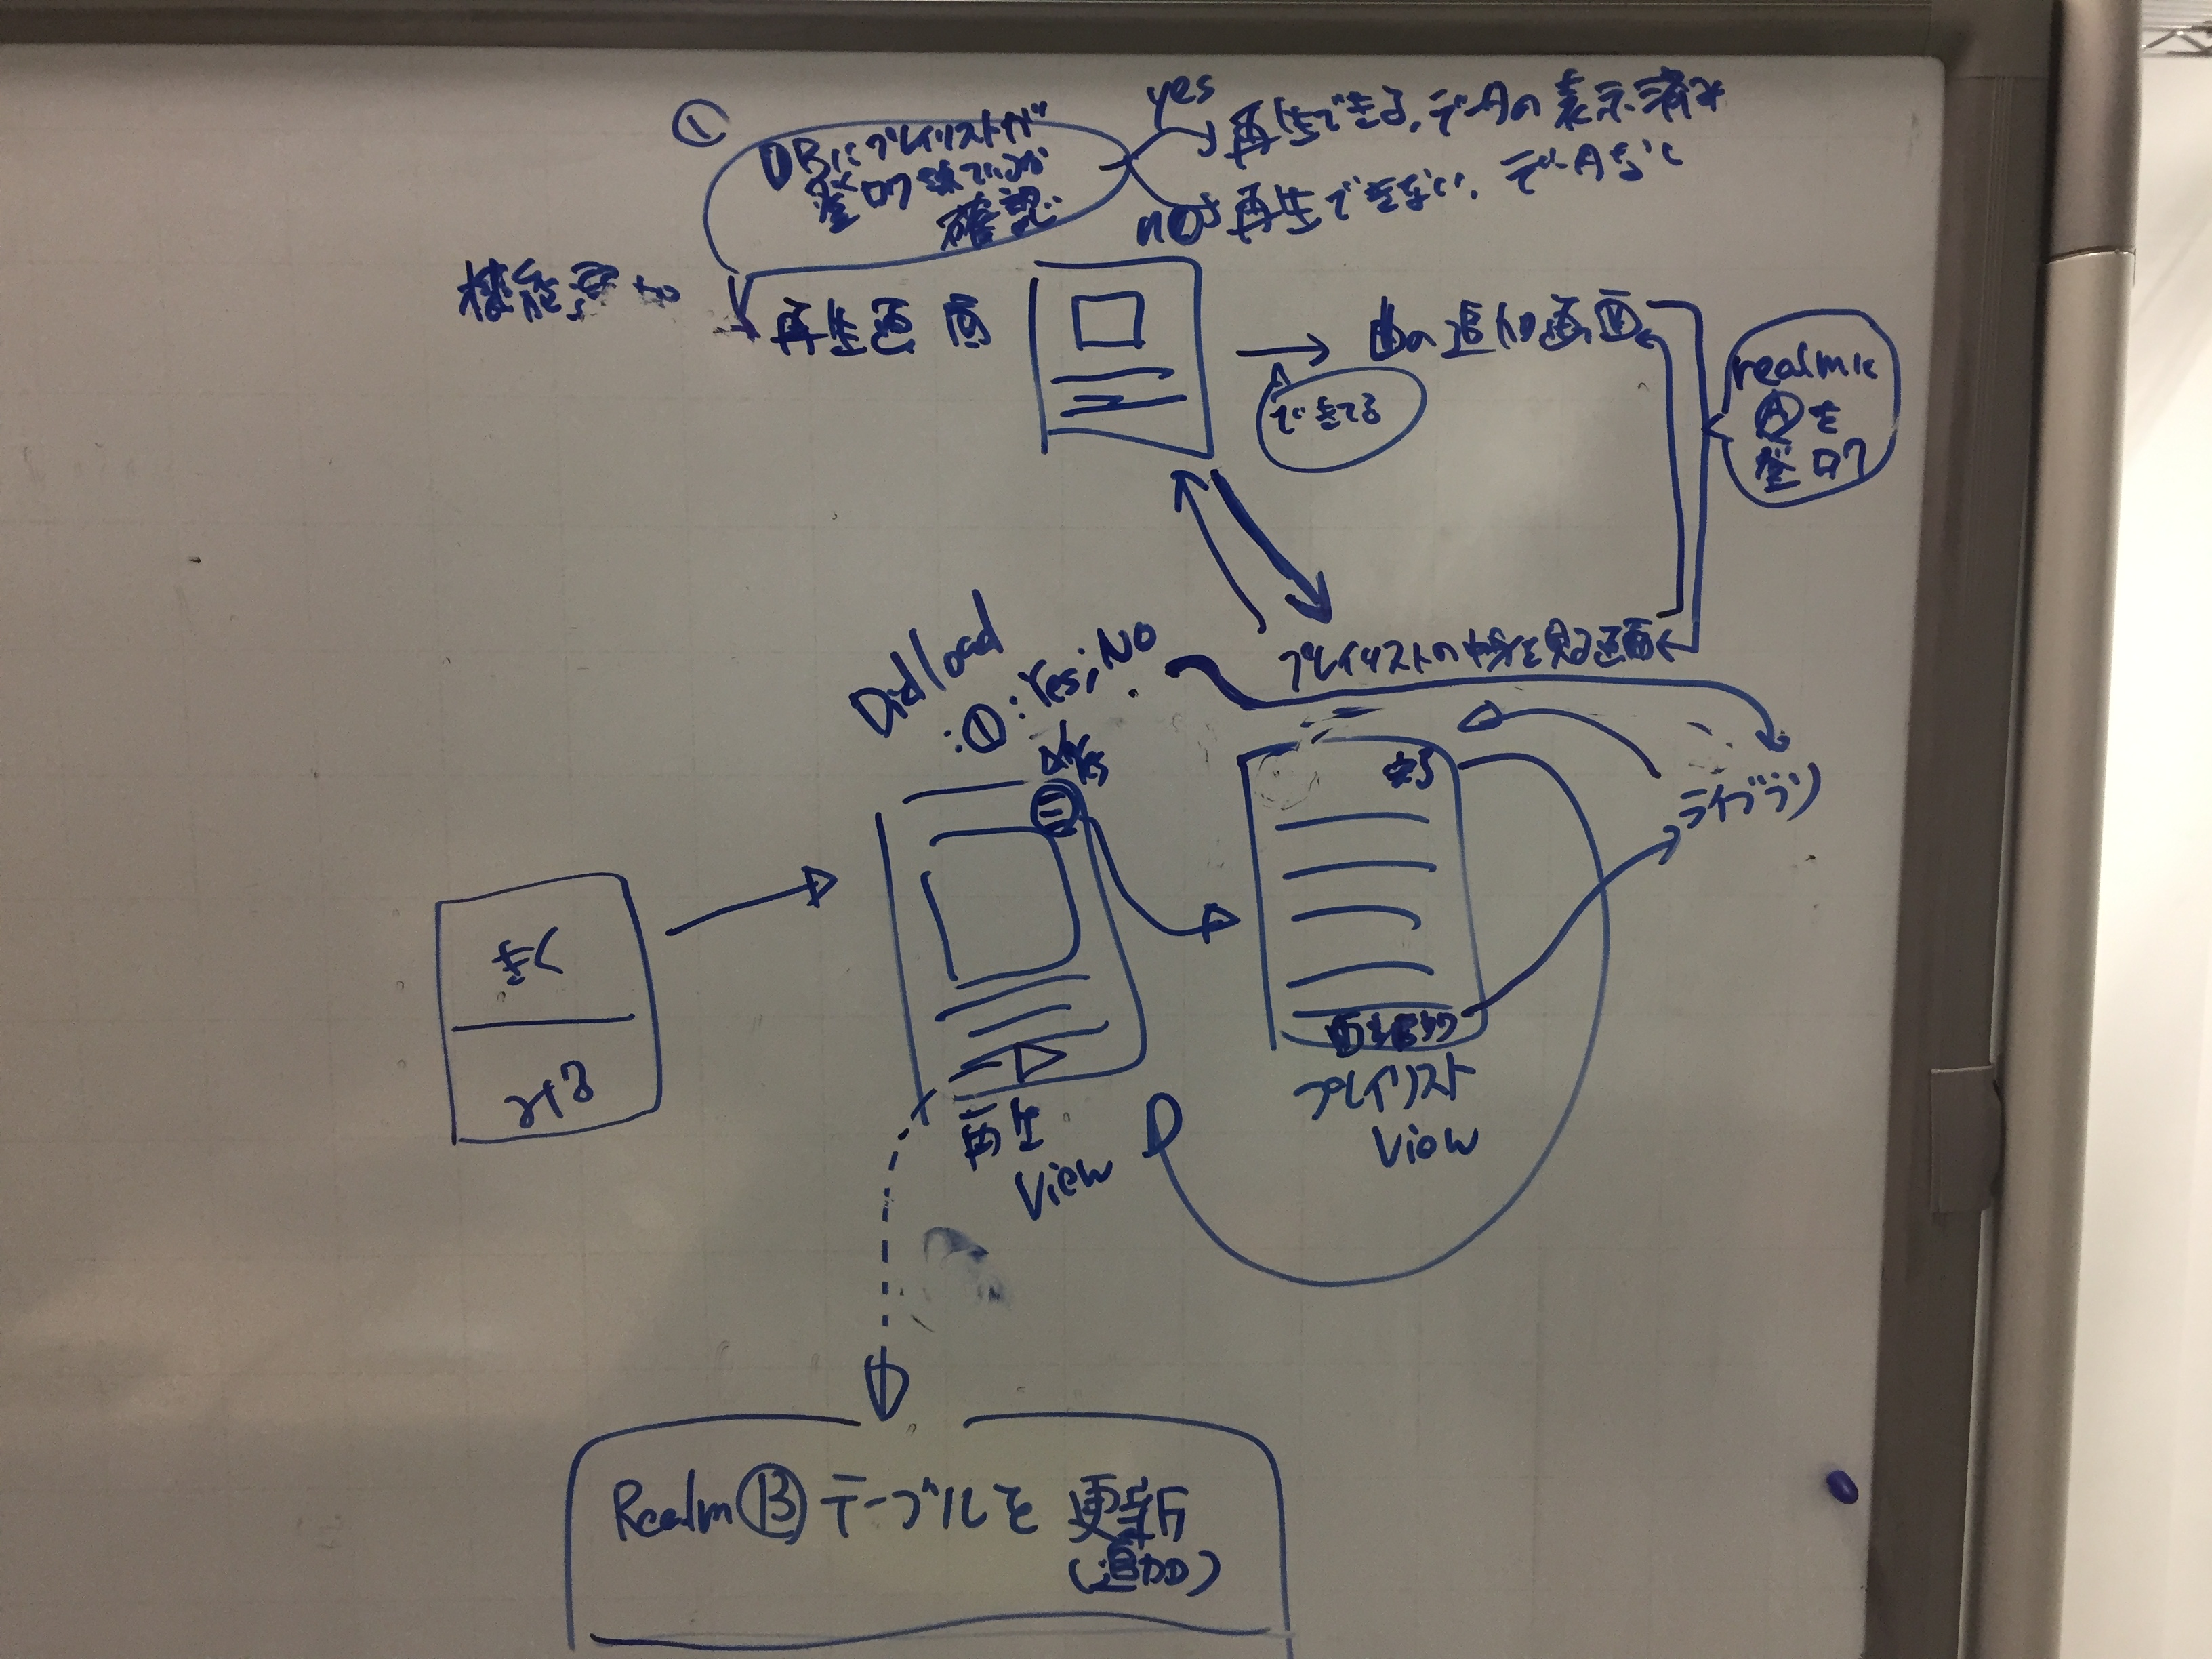 ①
DBにプレイリストが
登録されているか
確認
yes
再生できる、データの表示済み
no
再生できない、データなし
再生画面
曲の追加画面
できてる
realmに
Ⓐを
登録
プレイリストの中身を見る画面
Didload
:①:Yes,No
Yes
完了
ライブラリ
きく
みる
再生
View
プレイリスト
View
Realm Ⓑ テーブルを 更新
(追加)